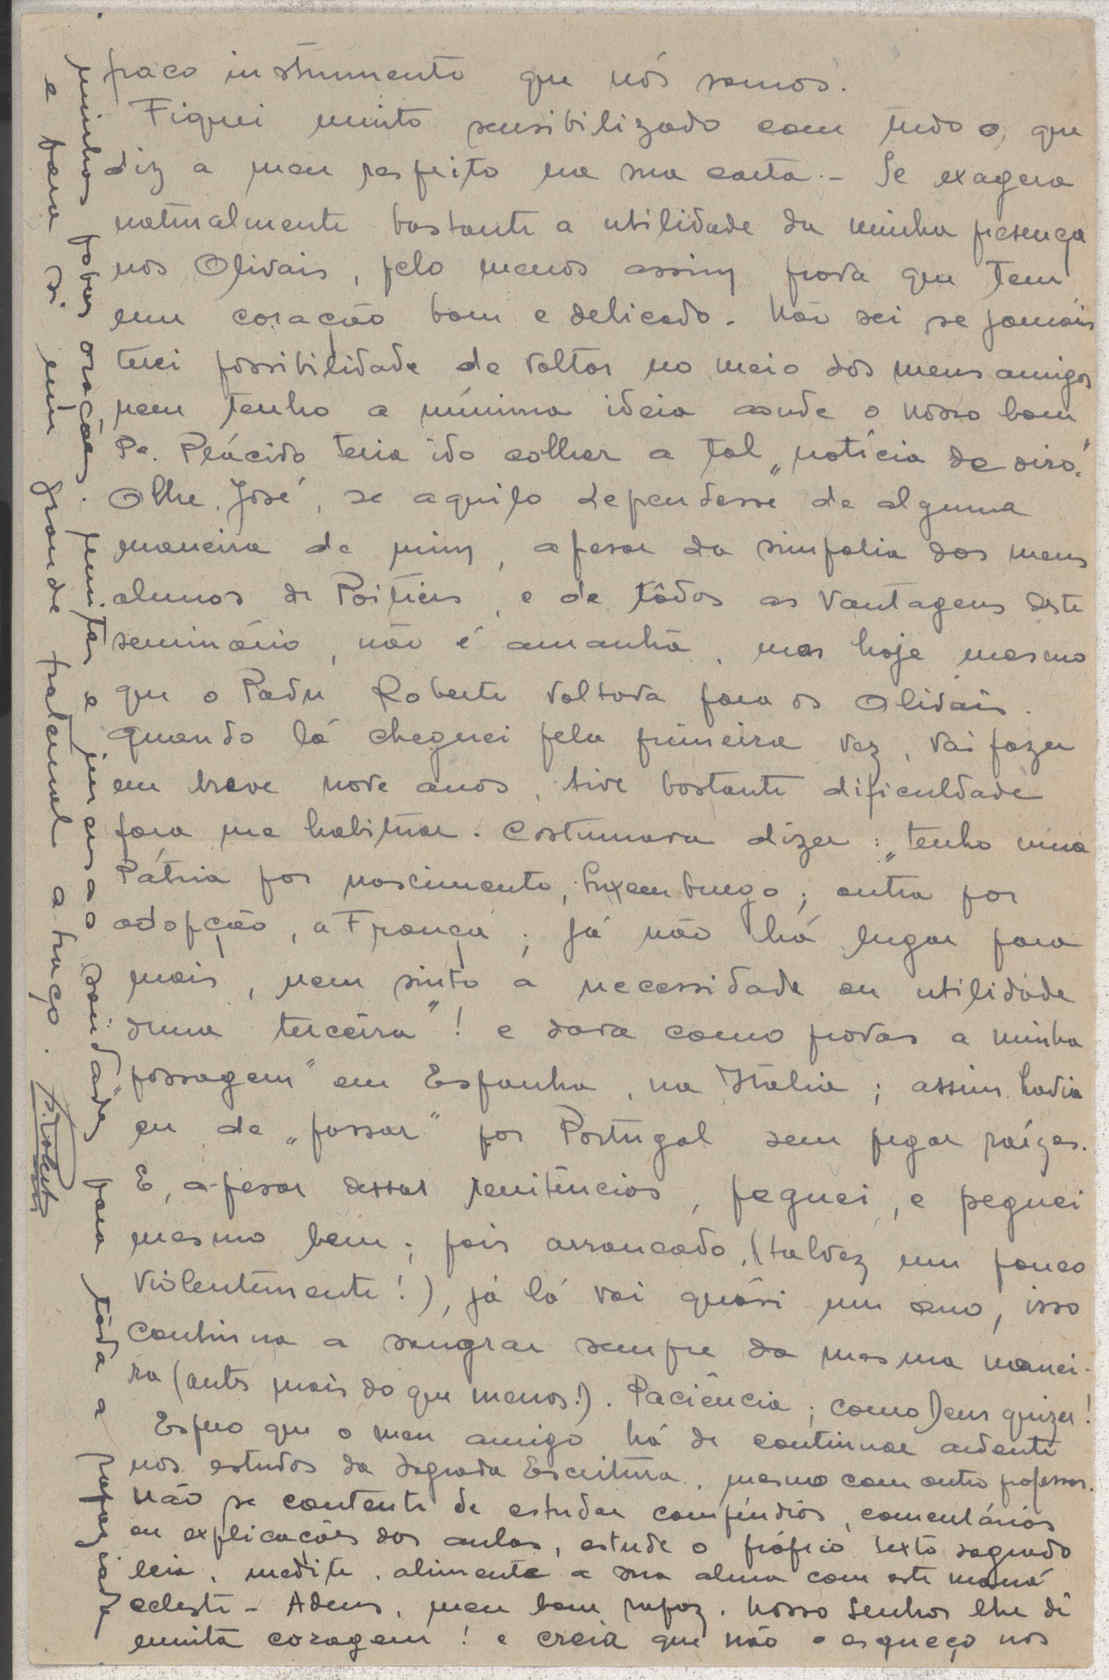 fraco instrumento que nós somos.
Fiquei muito sensibilizado com tudo o que
diz a meu respeito na sua carta. - Se exagera
naturalmente bastante a utilidade da minha presença
nos Olivais, pelo menos assim prova que tem
um coração bom e delicado. Não sei se jamais
terei possibilidade de voltar no meio dos meus amigos
nem tenho a mínima ideia aonde o nosso bom
Pe. Plácido teria ido colher a tal „notícia de oiro."
Olhe, José, se aquilo dependesse de alguma
maneira de mim, apesar da simpatia dos meus
alunos de Poitiers, e de tôdas as vantagens deste
seminário, não é amanhã, mas hoje mesmo
que o Padre Roberto voltava para os Olivais.
Quando lá cheguei pela primeira vez, vai fazer
em breve nove anos, tive bastante dificuldade
para me habituar. Costumava dizer: „tenho uma
Pátria por nascimento, Luxemburgo; outra por
adopção, a França; já não há lugar para
mais, nem sinto a necessidade ou utilidade
duma terceira"! e dava como provas a minha
„passagem" em Espanha, na Itália; assim havia
eu de „passar" por Portugal sem pegar raízes.
E, a-pesar dessas renitências, peguei, e peguei
mesmo bem; pois arrancado, (talvez um pouco
violentamente!), já lá vai quási um ano, isso
continua a sangrar sempre da mesma manei-
ra (antes mais do que menos!). Paciência; como Deus quizer!
Espero que o meu amigo há de continuar ardente
nos estudos da Sagrada Escritura, mesmo com outro professor.
Não se contente de estudar compêndios, comentários
ou explicações das aulas, estude o próprio texto sagrado
leia, medite, alimente a sua alma com este maná
celeste - Adeus, meu bom rapaz. Nosso Senhor lhe dê
muita coragem! e creia que não o esqueço nos
minhas pobres orações. Muitas e imensas saüdades para tôda a rapaziada
e para si um grande paternal abraço. P. Roberto